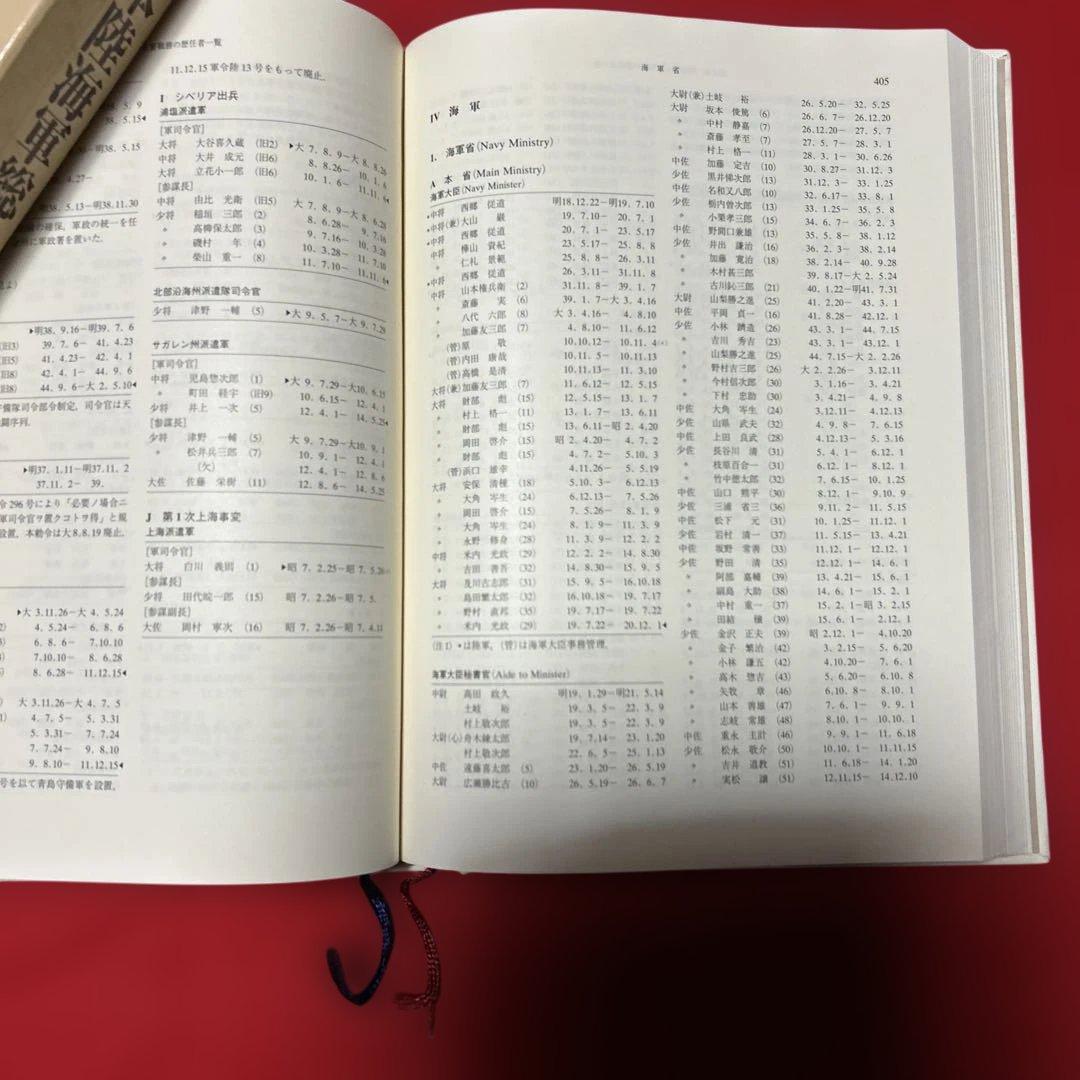 陸海軍総
職務の歴任者一覧
5. 9
38. 5.15◂
38. 5.15
4.27−
38.11.30
の確保、軍政の統一を任
に軍政署を置いた.
▸明38. 9.16−明39. 7. 6
(旧3) 39. 7. 6− 41. 4.23
(旧5) 41. 4.23− 42. 4. 1
(旧8) 44. 9. 6−大 2. 5.10◂
守備隊司令部令制定, 司令官は天
闘序列.
▸明37. 1.11−明37.11. 2
37.11. 2− 39.
令296号により「必要ノ場合ニ
軍司令官ヲ置クコトヲ得」と規
設置. 本勅令は大8.8.19廃止.
▸大 3.11.26−大 4. 5.24
4. 5.24− 6. 8. 6
6. 8. 6− 7.10.10
7.10.10− 8. 6.28
8. 6.28− 11.12.15◂
大 3.11.26−大 4. 7. 5
4. 7. 5− 5. 3.31
5. 3.31− 7. 7.24
7. 7.24− 9. 8.10
9. 8.10− 11.12.15◂
号を以て青島守備軍を設置.
11.12.15軍令陸13号をもって廃止.
I シベリア出兵
浦塩派遣軍
[軍司令官]
大将 大谷喜久蔵 (旧2) ▸大 7. 8. 9−大 8. 8.26
中将 大井 成元 (旧6) 8. 8.26− 10. 1. 6
大将 立花小一郎 (旧6) 10. 1. 6− 11.11.
[参謀長]
中将 由比 光衛 (旧5) 大 7. 8. 9−大 8. 6.28
少将 稲垣 三郎 (2) 8. 6.28− 9. 7.16
〃 高柳保太郎 (3) 9. 7.16− 10. 3.28
〃 磯村 年 (4) 10. 3.28− 11. 7.10
〃 柴山 重一 (8) 11. 7.10− 11.11. 6◂
北部沿海州派遣隊司令官
少将 津野 一輔 (5) ▸大 9. 5. 7−大 9. 7.29
サガレン州派遣軍
[軍司令官]
中将 児島惣次郎 (1) ▸大 9. 7.29−大10. 6.15
〃 町田 経宇 (旧9) 10. 6.15− 12. 4. 1
少将 井上 一次 (5) 12. 4. 1− 14. 5.25◂
[参謀長]
少将 津野 一輔 (5) 大 9. 7.29−大10. 9. 1
〃 松井兵三郎 (7) 10. 9. 1− 12. 4. 1
(欠) 12. 4. 1− 12. 8. 6
大佐 佐藤 栄樹 (11) 12. 8. 6− 14. 5.25
J 第1次上海事変
上海派遣軍
[軍司令官]
大将 白川 義則 (1) ▸昭 7. 2.25−昭 7. 5.26
[参謀長]
少将 田代皖一郎 (15) 昭 7. 2.26−昭 7. 5.
[参謀副長]
大佐 岡村 寧次 (16) 昭 7. 2.26−昭 7. 4.11
海軍省
405
IV 海 軍
1. 海軍省(Navy Ministry)
A 本 省(Main Ministry)
海軍大臣(Navy Minister)
*中将 西郷 従道 明18.12.22−明19. 7.10
*中将(兼)大山 巌 19. 7.10− 20. 7. 1
*中将 西郷 従道 20. 7. 1− 23. 5.17
中将 樺山 資紀 23. 5.17− 25. 8. 8
〃 仁礼 景範 25. 8. 8− 26. 3.11
*中将 西郷 従道 26. 3.11− 31.11. 8
中将 山本権兵衛 (2) 31.11. 8− 39. 1. 7
〃 斎藤 実 (6) 39. 1. 7−大 3. 4.16
〃 八代 六郎 (8) 大 3. 4.16− 4. 8.10
〃 加藤友三郎 (7) 4. 8.10− 11. 6.12
(管)原 敬 10.10.12− 10.11. 4
(管)内田 康哉 10.11. 5− 10.11.13
(管)高橋 是清 10.11.13− 11. 3.10
大将(兼)加藤友三郎 (7) 11. 6.12− 12. 5.15
大将 財部 彪 (15) 12. 5.15− 13. 1. 7
〃 村上 格一 (11) 13. 1. 7− 13. 6.11
〃 財部 彪 (15) 13. 6.11−昭 2. 4.20
〃 岡田 啓介 (15) 昭 2. 4.20− 4. 7. 2
〃 財部 彪 (15) 4. 7. 2− 5.10. 3
(管)浜口 雄幸 4.11.26− 5. 5.19
大将 安保 清種 (18) 5.10. 3− 6.12.13
〃 大角 岑生 (24) 6.12.13− 7. 5.26
〃 岡田 啓介 (15) 7. 5.26− 8. 1. 9
〃 大角 岑生 (24) 8. 1. 9− 11. 3. 9
〃 永野 修身 (28) 11. 3. 9− 12. 2. 2
中将 米内 光政 (29) 12. 2. 2− 14. 8.30
〃 吉田 善吾 (32) 14. 8.30− 15. 9. 5
大将 及川古志郎 (31) 15. 9. 5− 16.10.18
〃 島田繁太郎 (32) 16.10.18− 19. 7.17
〃 野村 直邦 (35) 19. 7.17− 19. 7.22
〃 米内 光政 (29) 19. 7.22− 20.12. 1◂
(注1) *は陸軍, (管)は海軍大臣事務管理.
海軍大臣秘書官(Aide to Minister)
中尉 高田 政久 明19. 1.29−明21. 5.14
土岐 裕 19. 3. 5− 22. 3. 9
村上敬次郎 19. 3. 5− 22. 3. 9
大尉(心)舟木錬太郎 19. 7.14− 23. 1.20
村上敬次郎 22. 6. 5− 25. 1.13
中佐 遠藤喜太郎 (5) 23. 1.20− 26. 5.19
大尉 広瀬勝比古 (10) 26. 5.19− 26. 6. 7
大尉(兼)土岐 裕 26. 5.20− 32. 5.25
大尉 坂本 俊篤 (6) 26. 6. 7− 26.12.20
〃 中村 静嘉 (7) 26.12.20− 27. 5. 7
〃 斎藤 孝至 (7) 27. 5. 7− 28. 3. 1
〃 村上 格一 (11) 28. 3. 1− 30. 6.26
中佐 加藤 定吉 (10) 30. 8.27− 31.12. 3
少佐 黒井悌次郎 (13) 31.12. 3− 33. 1.25
中佐 名和又八郎 (10) 32. 6.17− 33. 8. 1
少佐 栃内曽次郎 (13) 33. 1.25− 35. 5. 8
〃 小栗孝三郎 (15) 34. 6. 7− 36. 2. 3
中佐 野間口兼雄 (13) 35. 5. 8− 38. 1.12
少佐 井出 謙治 (16) 36. 2. 3− 38. 2.14
〃 加藤 寛治 (18) 38. 2.14− 40. 9.28
〃 木村甚三郎 39. 8.17−大 2. 5.24
〃 古川鈊三郎 (21) 40. 1.32−明41. 7.31
大尉 山梨勝之進 (25) 41. 2.20− 43. 3. 1
中佐 平岡 貞一 (16) 41. 8.28− 42.12. 1
少佐 小林 躋造 (26) 43. 3. 1− 44. 7.15
〃 吉川 秀吉 (23) 43. 3. 1− 43.12. 1
〃 山梨勝之進 (25) 44. 7.15−大 2. 2.26
〃 野村吉三郎 (26) 大 2. 2.26− 3.12.11
〃 今村信次郎 (30) 3. 1.16− 3. 4.21
〃 下村 忠助 (30) 3. 4.21− 4. 8. 3
中佐 大角 岑生 (24) 3.12.11− 4.12.13
少佐 山県 武夫 (32) 4. 9. 8− 7. 6.15
中佐 上田 良武 (28) 4.12.13− 5. 3.16
少佐 長谷川 清 (31) 5. 4. 1− 6.12. 1
〃 枝原百合一 (31) 6.12. 1− 8.12. 1
〃 竹中徳太郎 (32) 7. 6.15− 10. 1.25
中佐 山口 熊平 (30) 8.12. 1− 9.10. 9
少佐 三浦 省三 (36) 9.11. 2− 11. 5.15
中佐 松下 元 (31) 10. 1.25− 11.12. 1
少佐 岩村 清一 (37) 11. 5.15− 13. 4.21
中佐 坂野 常善 (33) 11.12. 1− 12.12. 1
少佐 野田 清 (35) 12.12. 1− 14. 6. 1
〃 阿部 嘉輔 (39) 13. 4.21− 15. 6. 1
〃 副島 大助 (38) 14. 6. 1− 15. 2. 1
〃 中村 重一 (37) 15. 2. 1−昭 3. 2.15
〃 田結 穣 (39) 15. 6. 1− 2.12. 1
少佐 金沢 正夫 (39) 昭 2.12. 1− 4.10.20
〃 金子 繁治 (42) 3. 2.15− 5. 6.20
〃 小林 謙五 (42) 4.10.20− 7. 6. 1
〃 高木 惣吉 (43) 5. 6.20− 6.10. 8
〃 矢牧 章 (46) 6.10. 8− 8.10. 1
〃 山本 善雄 (47) 7. 6. 1− 9. 9. 1
〃 志岐 常雄 (48) 8.10. 1− 10.10. 1
中佐 重永 主計 (46) 9. 9. 1− 11. 6.18
少佐 松永 敬介 (50) 10.10. 1− 11.11.15
〃 吉井 道教 (51) 11. 6.18− 14. 1.20
〃 実松 譲 (51) 12.11.15− 14.12.10